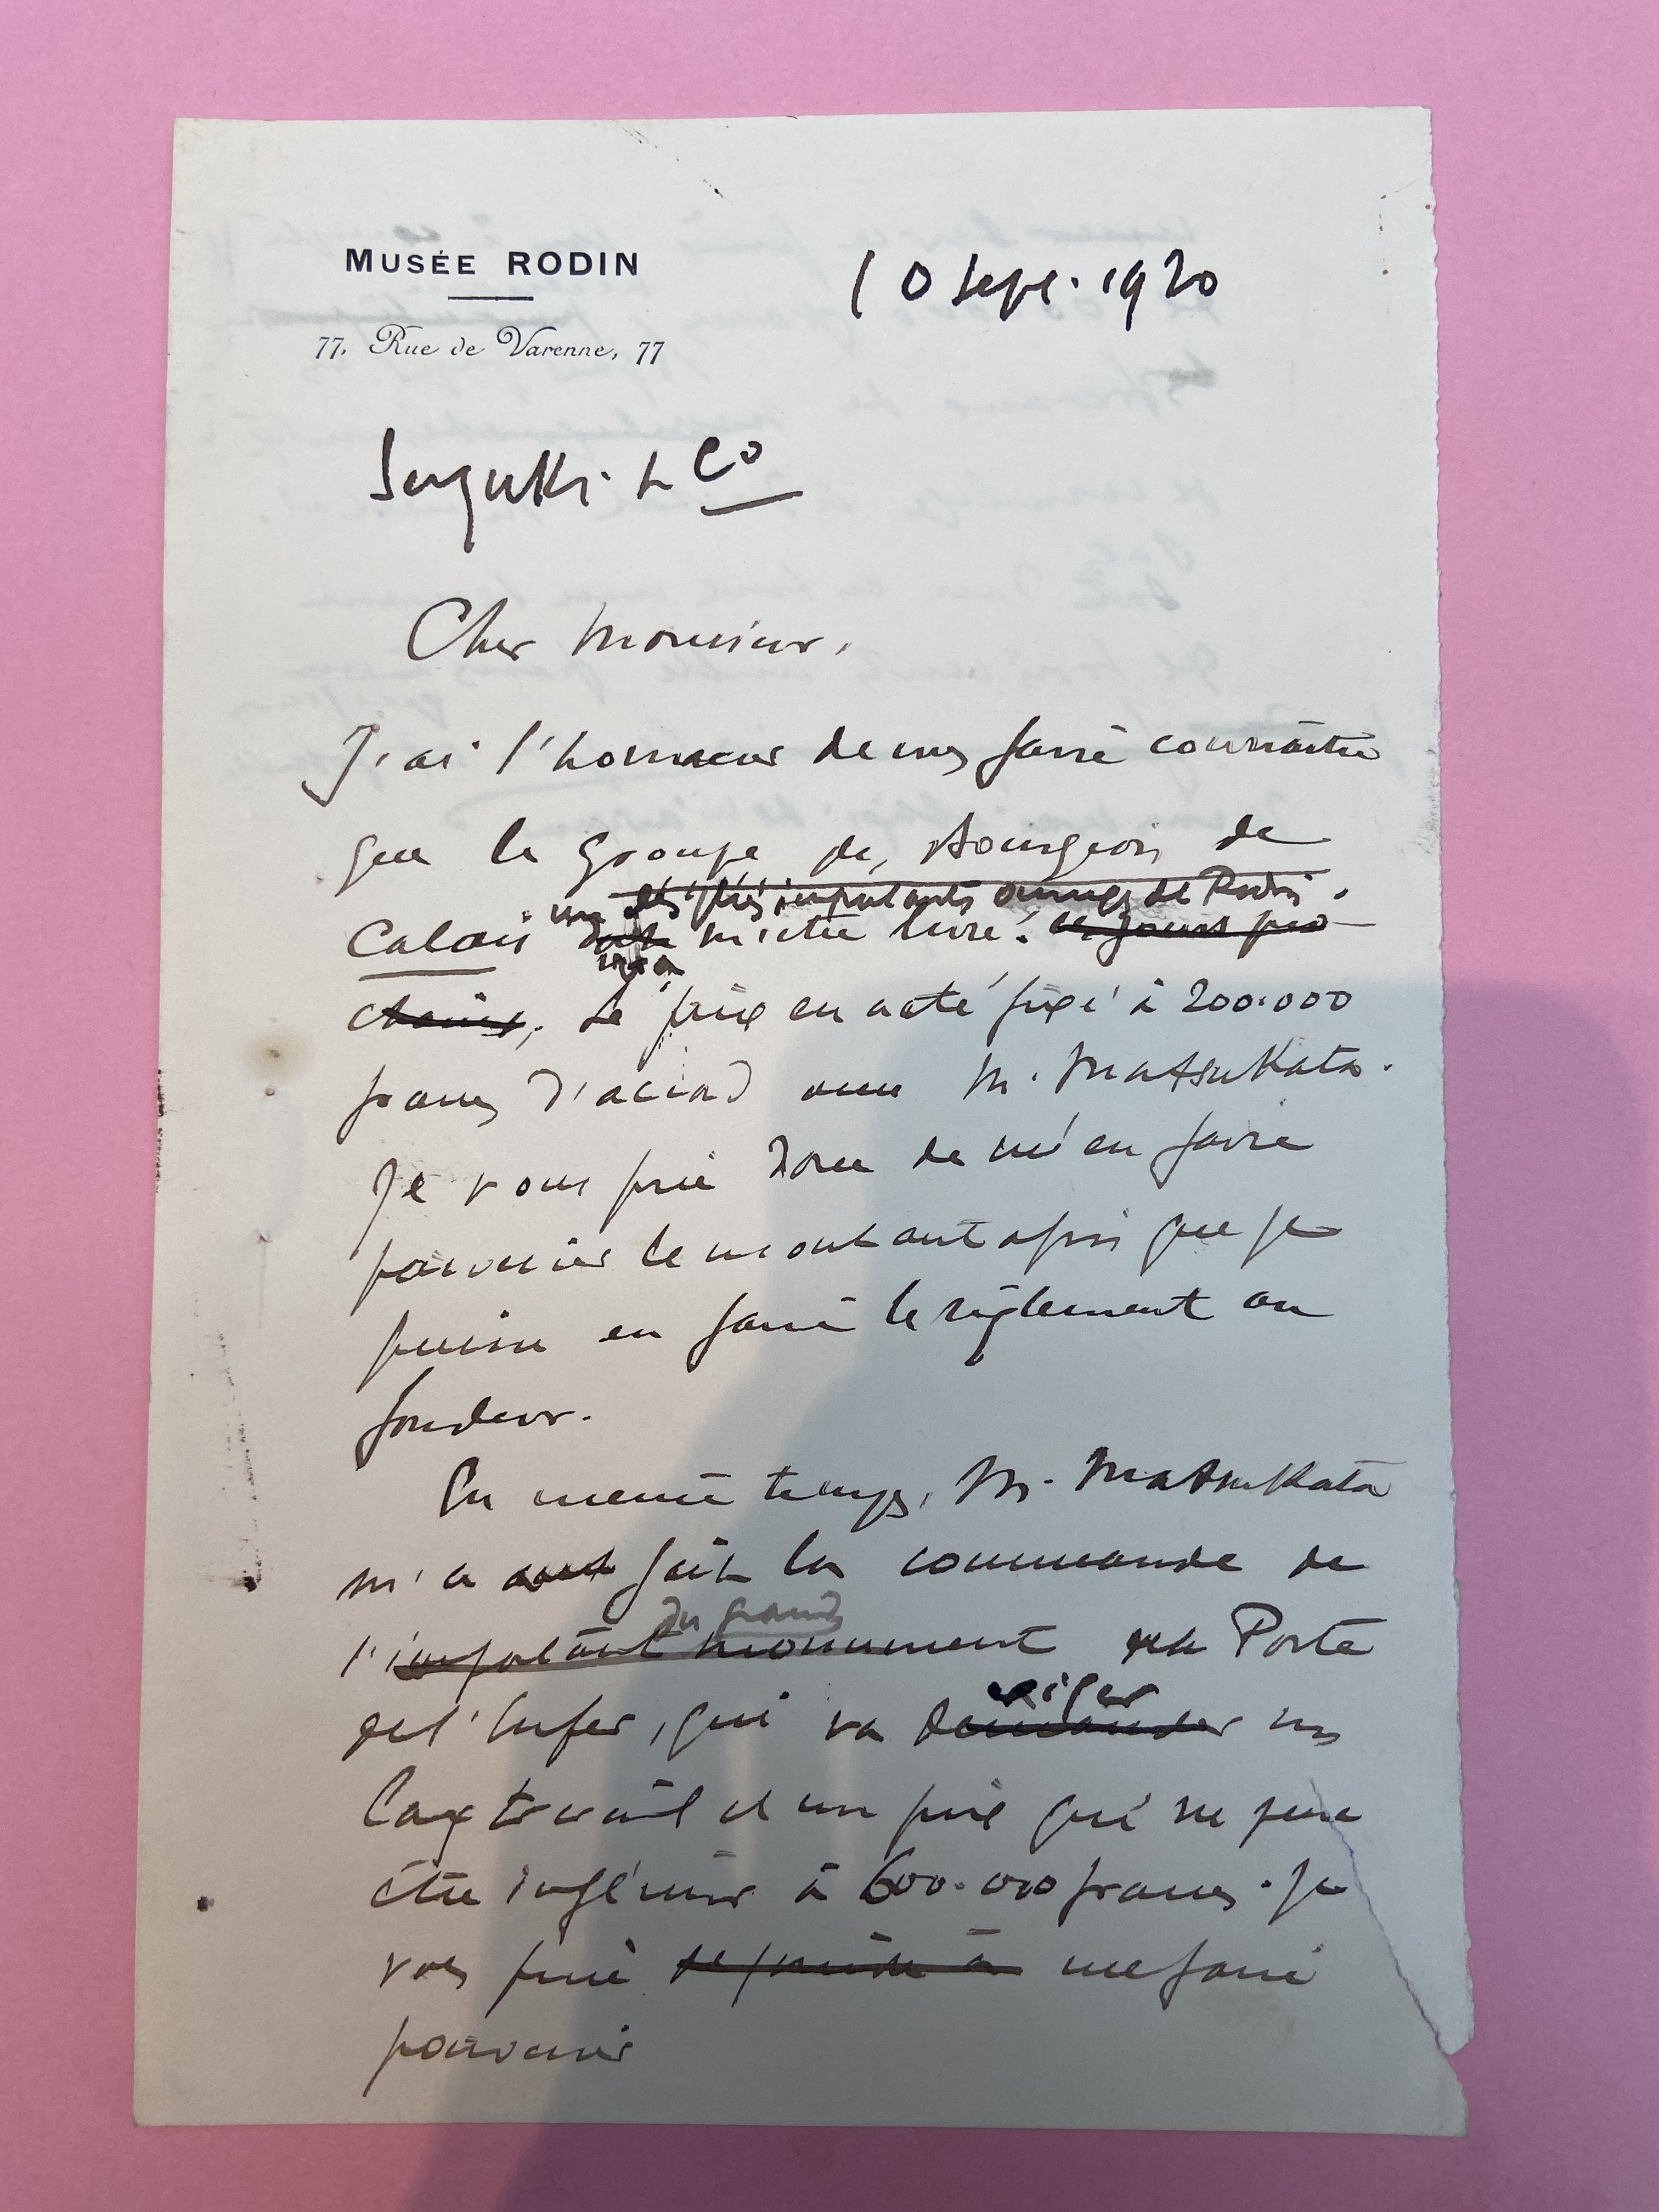 MUSÉE RODIN
77, Rue de Varenne, 77
10 Sept. 1920
Suzuki & Co
Cher Monsieur,
J'ai l'honneur de vous faire connaître
que le groupe des Bourgeois de
un des plus importants ouvrages de Rodin,
Calais doit m'être livré. ces jours pro
va
chains, Le prix en a été fixé à 200.000
francs d'accord avec M. Matsukata.
Je vous prie donc de m'en faire
parvenir le montant afin que je
puisse en faire le règlement au
fondeur.
En même temps, M. Matsukata
m'a fait la commande de
du grand
l'important monument de la Porte
exiger
de l'Enfer, qui va demander un
long travail et un prix qui ne peut
être inférieur à 600.000 francs. Je
vous prie me faire
parvenir